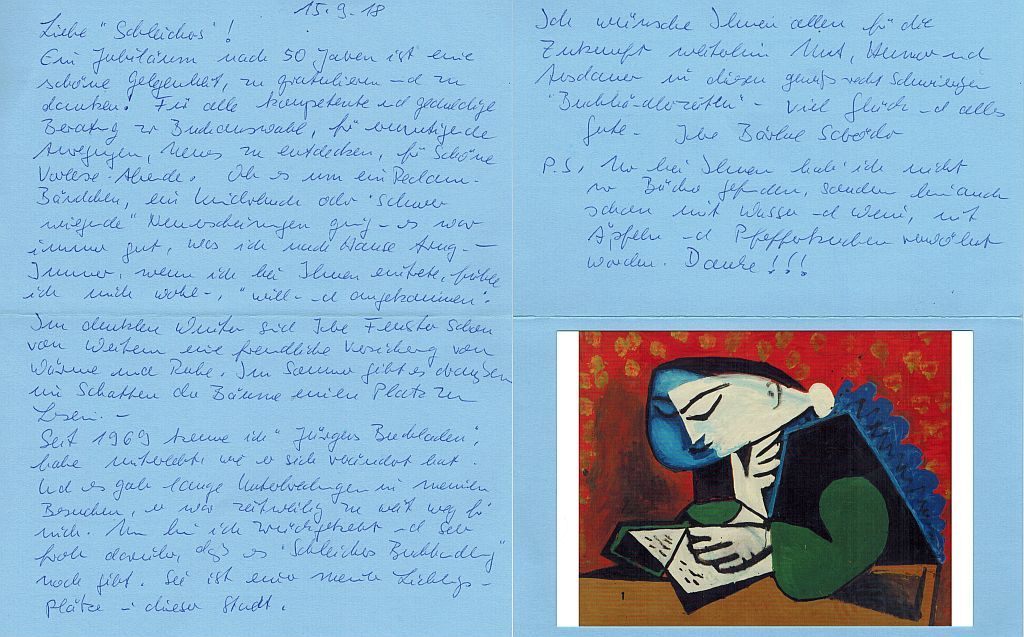 15.9.18
Liebe "Schleichers"!
Ein Jubiläum nach 50 Jahren ist eine
schöne Gelegenheit, zu gratulieren und zu
danken. Für alle kompetente und geduldige
Beratung zur Buchauswahl, für ermutigende
Anregungen, Neues zu entdecken, für schöne
Vorlese-Abende. Ob es um ein Reclam-
Bändchen, ein Kinderbuch oder "schwer
wiegende" Neuerscheinungen ging - es war
immer gut, was ich nach Hause trug -
Immer, wenn ich bei Ihnen eintrete, fühle
ich mich wohl-, "will- und angekommen".
Im dunklen Winter sind Ihre Fenster schon
von Weitem eine freundliche Versicherung von
Wärme und Ruhe. Im Sommer gibt es draußen
im Schatten der Bäume einen Platz zu
Lesen. -
Seit 1969 kenne ich "Jürgens Buchladen",
habe miterlebt, wie er sich verändert hat.
Und es gab lange Unterbrechungen in meinen
Besuchen, er war zeitweilig zu weit weg für
mich. Nun bin ich zurückgekehrt und sehr
froh darüber, daß es "Schleichers Buchhandlung"
noch gibt. Sie ist einer meiner Lieblings-
plätze in dieser Stadt.
Ich wünsche Ihnen allen für die
Zukunft weiterhin Mut, Humor und
Ausdauer in diesen gewiß recht schwierigen
"Buchhändlerzeiten" - viel Glück und alles
Gute - Ihre Bärbel
P.S. Nur bei Ihnen hab' ich nicht
nur Bücher gefunden, sondern bin auch
schon mit Wasser und Wein, mit
Äpfeln und Pfefferkuchen verwöhnt
worden. Danke!!!
1